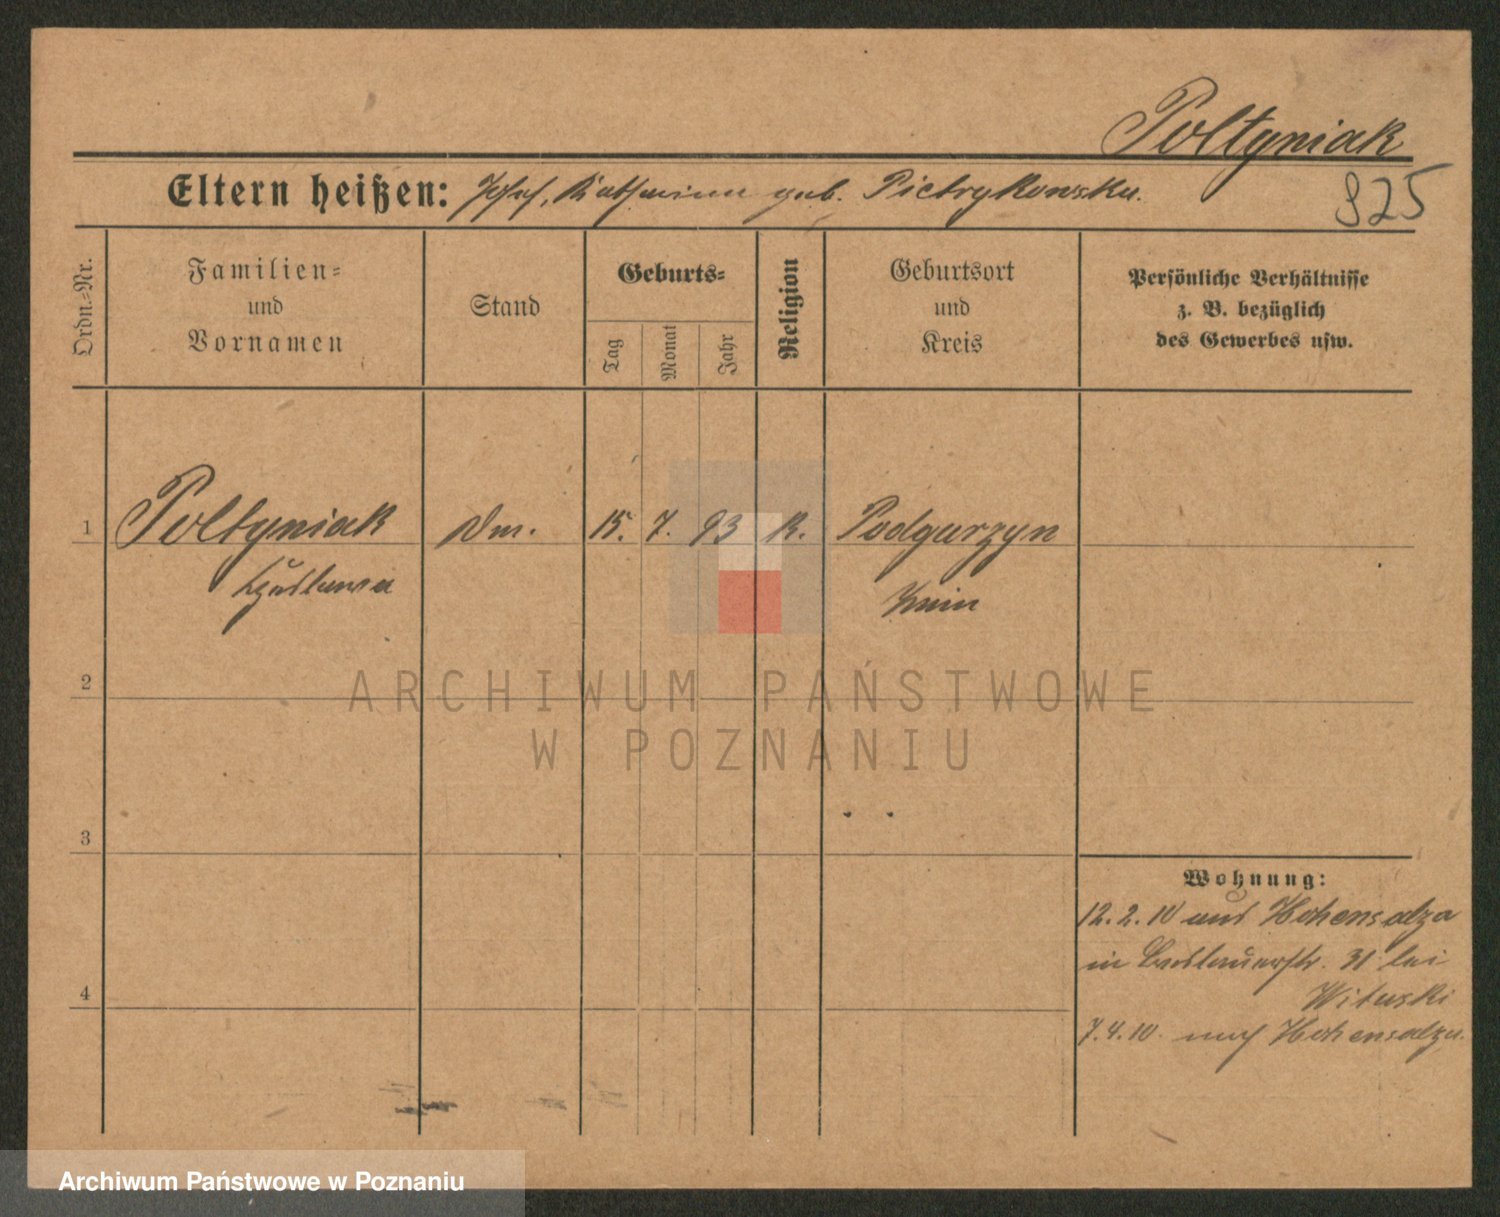 Poltyniak
Eltern heißen: Josef, Katharina geb. Pietrykowska.
825
Ordn.=Nr.
Familien=
und
Vornamen
Stand
Geburts=
Tag
Monat
Jahr
Religion
Geburtsort
und
Kreis
Persönliche Verhältnisse
z. B. bezüglich
des Gewerbes usw.
1
Poltyniak
Dm.
15.
7.
93
K.
Podgurzyn
Znin
2
3
4
Wohnung:
12.2.10 aus Hohensalza
in 31 bei
Wituski
7.4.10. nach Hohensalza.
ARCHIWUM PAŃSTWOWE
W POZNANIU
Archiwum Państwowe w Poznaniu